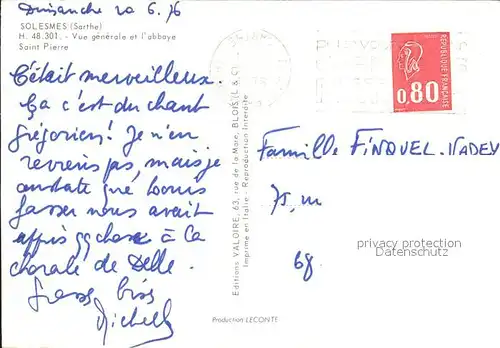 Dimanche 20 6.76
SOLESMES (Sarthe)
H. 48.301. - Vue générale et l'abbaye
Saint Pierre
C'était merveilleux.
Ça c'est du chant
grégorien! Je n'en
reviens pas, mais je
constate que Louis
Gasser nous avait
appris qq chose à la
chorale de Delle.
Grosses bises
Michel
Editions VALOIRE, 63, rue de la Mare, BLOIS (L. & C.)
Imprimé en Italie - Reproduction Interdite
REPUBLIQUE FRANÇAISE
0,80
Famille FINQUEL-NADEY
privacy protection
Delcampe.net
68
Production LECONTE